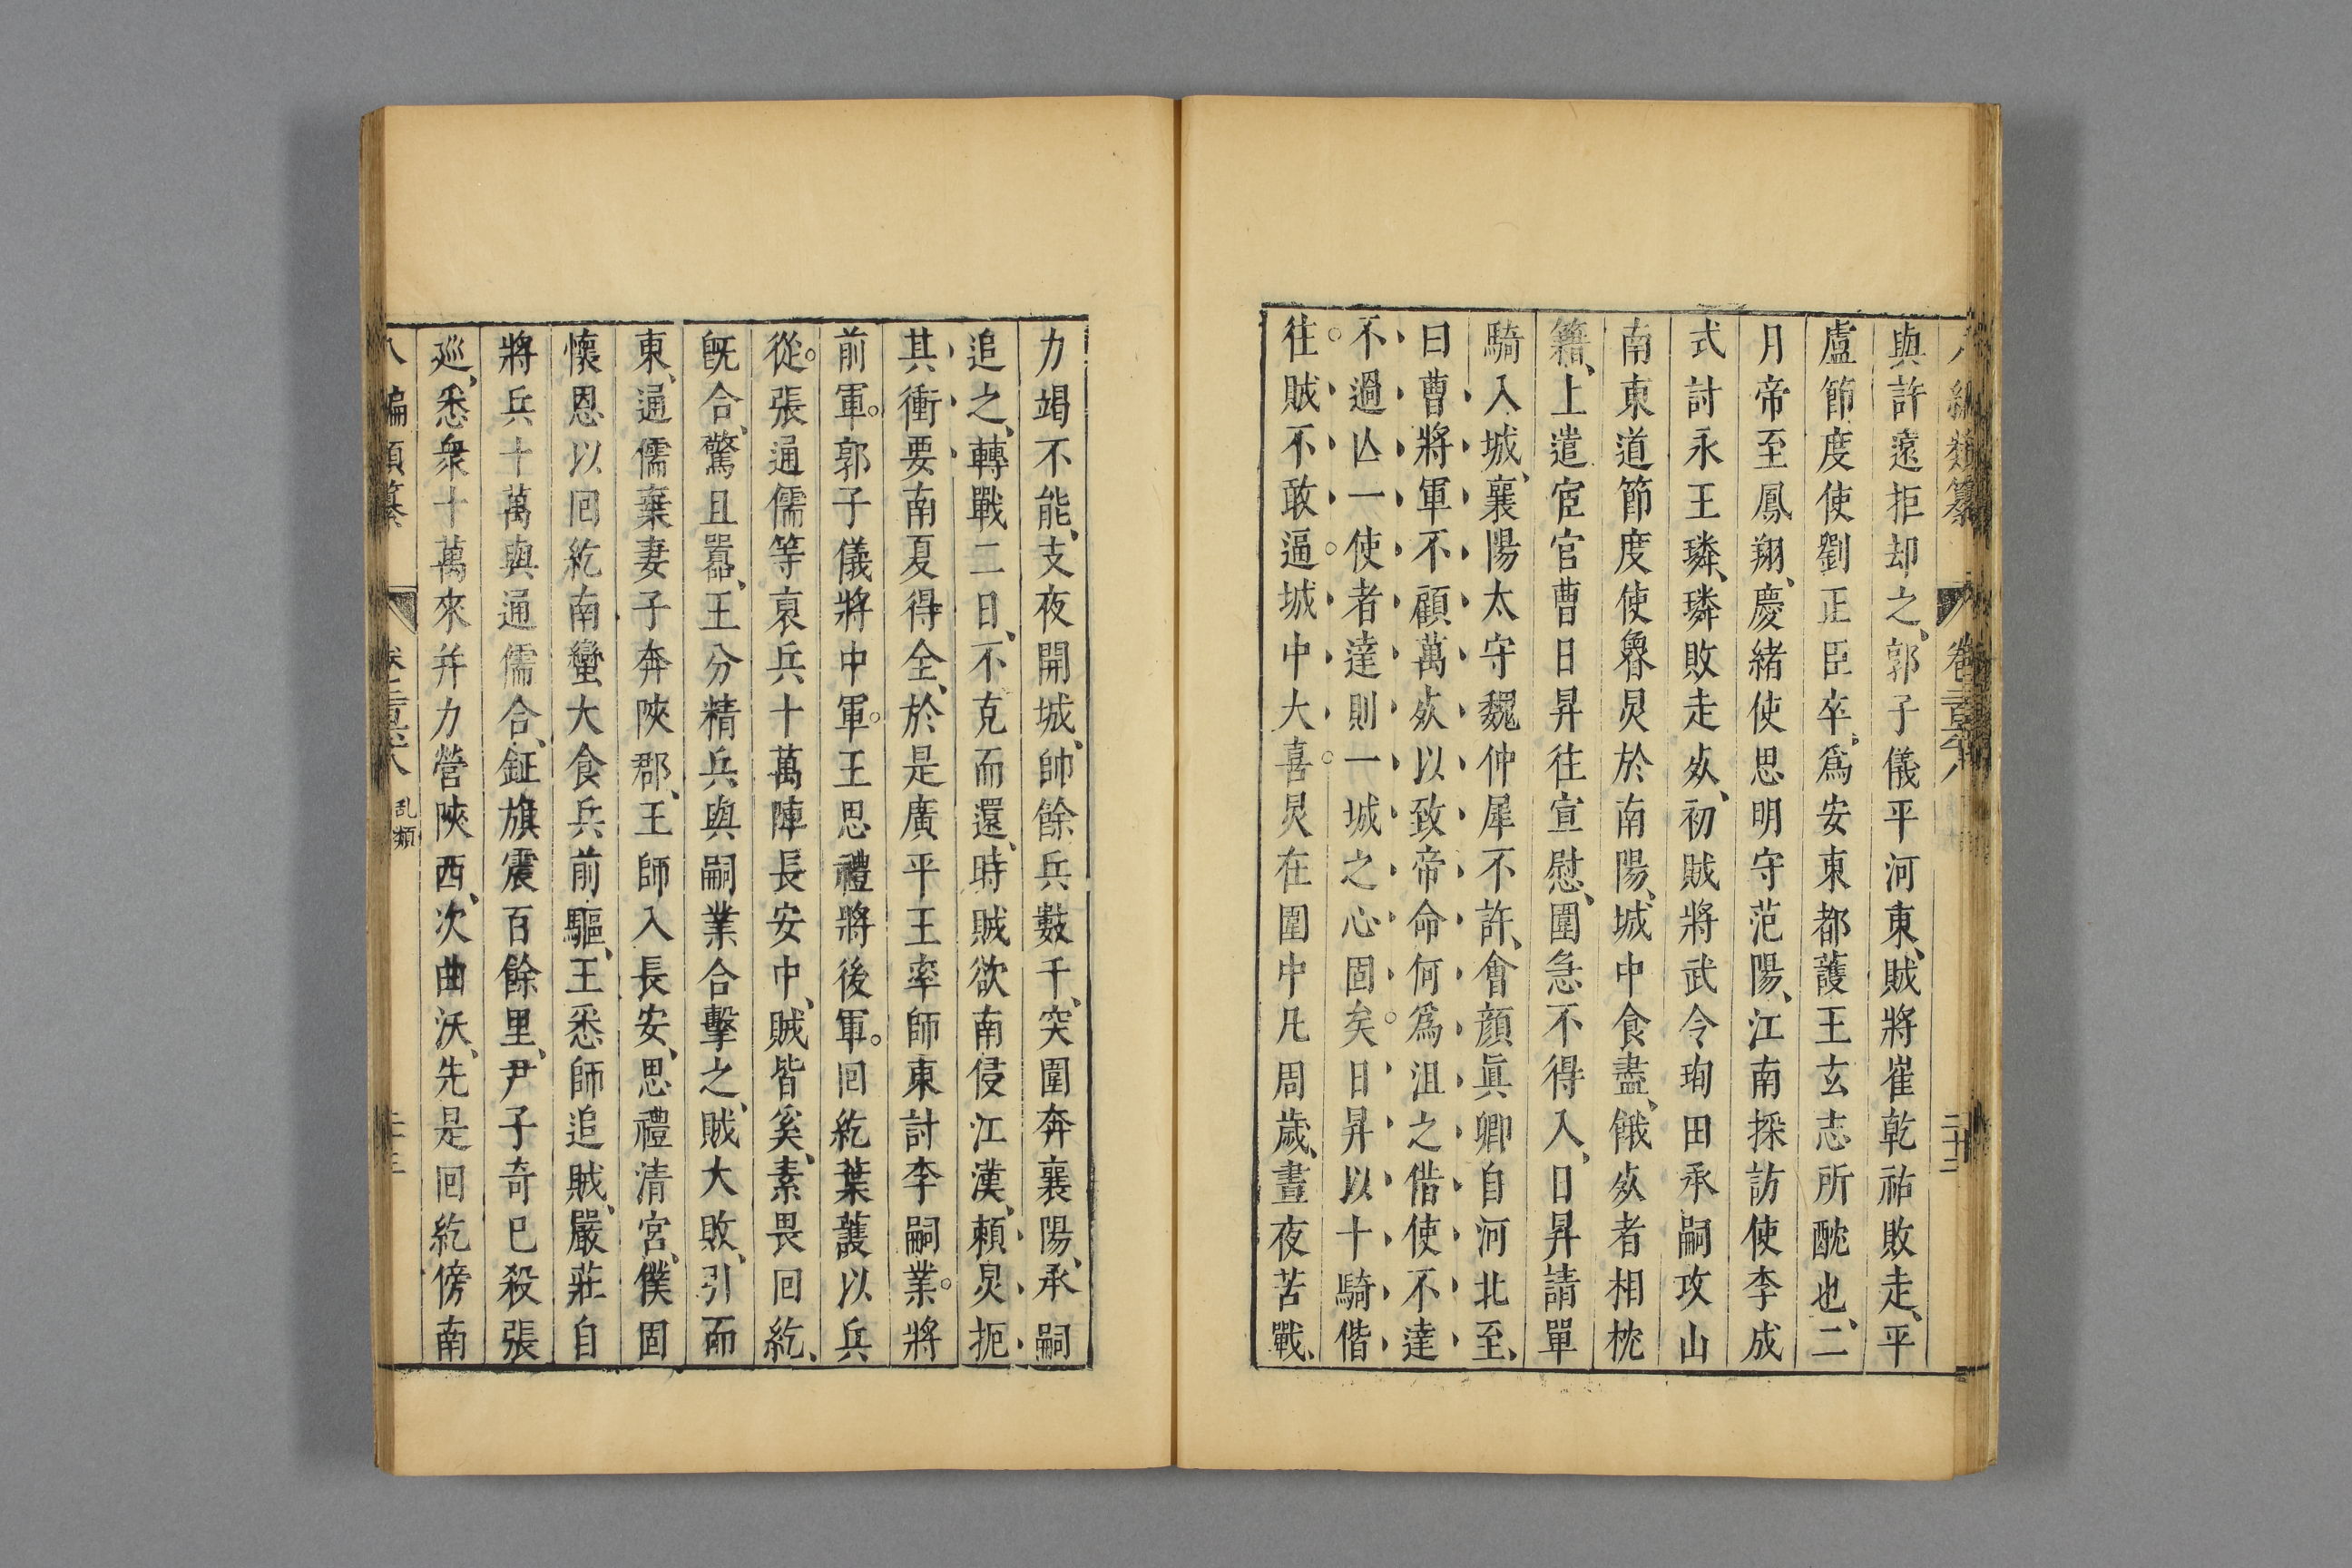 八編類纂 卷二百 八 二十二
與許遠拒却之、郭子儀平河東、賊將崔乾祐敗走、平
盧節度使劉正臣卒、爲安東都護王玄志所酖也、二
月帝至鳳翔、慶緒使思明守范陽、江南採訪使李成
式討永王璘、璘敗走死、初賊將武令珣田承嗣攻山
南東道節度使魯炅於南陽、城中食盡、餓死者相枕
籍、上遣宦官曹日昇往宣慰、圍急不得入、日昇請單
騎入城、襄陽太守魏仲犀不許、會顔眞卿自河北至、
曰曹將軍不顧萬死以致帝命何爲沮之偕使不達
不過亾一使者達則一城之心固矣日昇以十騎偕
往賊不敢逼城中大喜炅在圍中凡周歲、晝夜苦戰、
力竭不能、支夜開城、帥餘兵數千、突圍奔襄陽、承嗣
追之、轉戰二日、不克而還、時賊欲南侵江漢、賴炅扼
其衝要南夏得全、於是廣平王率師東討李嗣業。將
前軍。郭子儀將中軍。王思禮將後軍。回紇葉護以兵
從。張通儒等裒兵十萬陣長安中、賊皆奚、素畏回紇、
旣合、驚且囂、王分精兵與嗣業合擊之、賊大敗、引而
東、通儒棄妻子奔陝郡、王師入長安、思禮清宮、僕固
懷恩以回紇南蠻大食兵前驅、王悉師追賊、嚴莊自
將兵十萬與通儒合、鉦旗震百餘里、尹子奇巳殺張
巡、悉衆十萬來并力營陝西、次曲沃、先是回紇傍南
八編類纂 卷 八 乱類